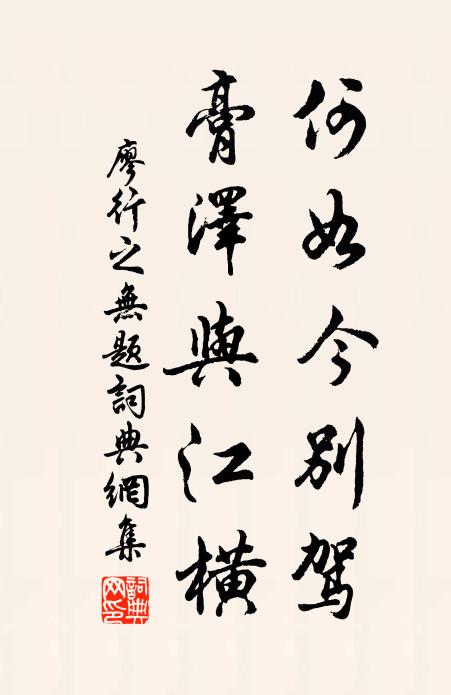 何如今別駕
膏澤與江橫
廖行之無題詞典網集
詞典網印